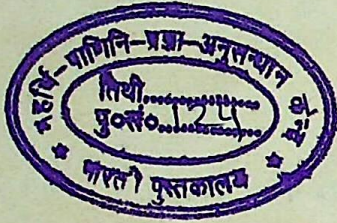 महर्षि-पाणिनि-प्रज्ञा-अनुसन्धान केन्द्र
तिथी..................
पु०सं०..124..........
* भारती पुस्तकालय *